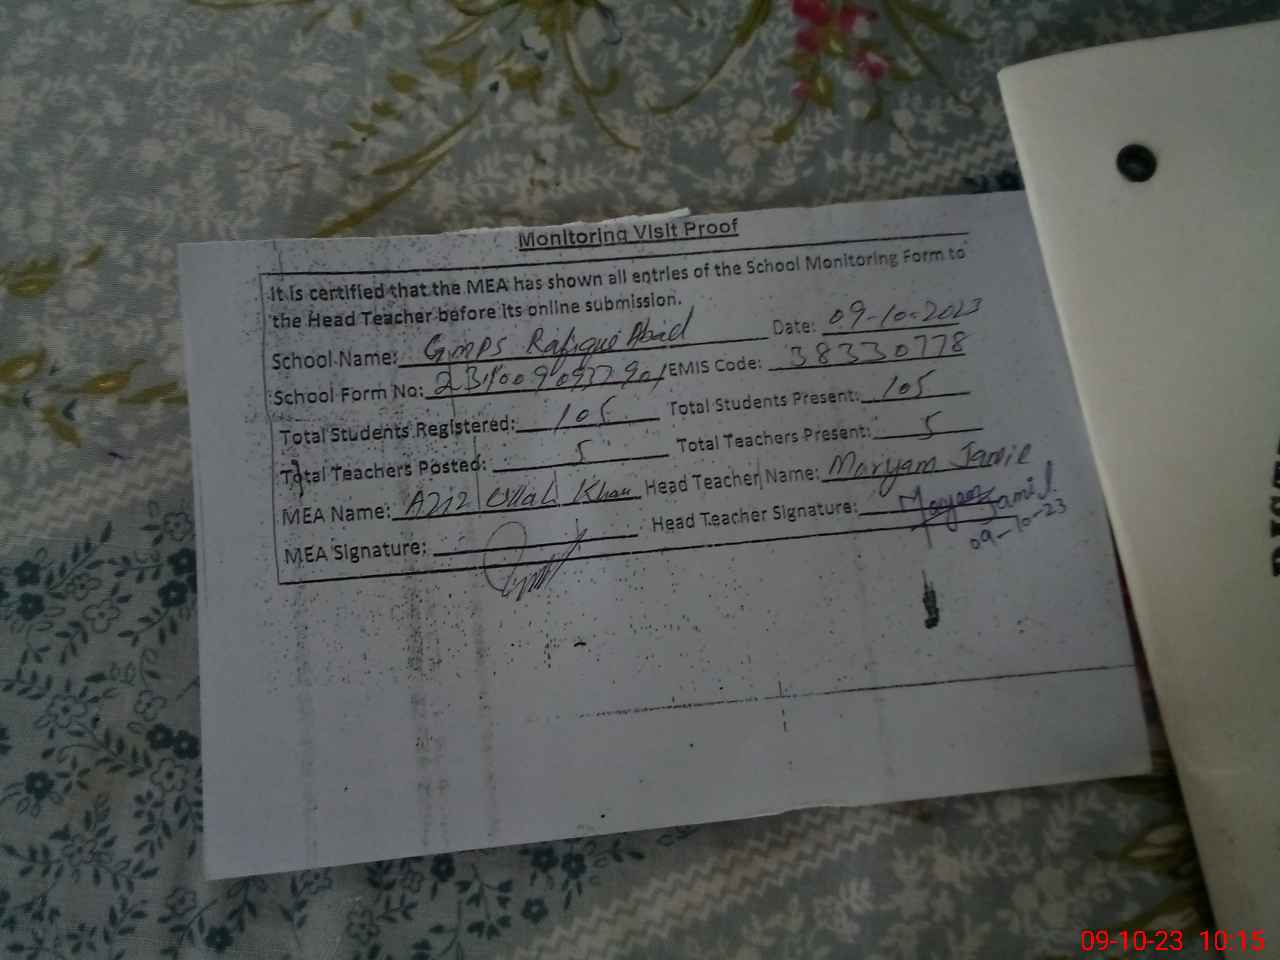 Monitoring Visit Proof
It is certified that the MEA has shown all entries of the School Monitoring Form to
the Head Teacher before its online submission.
School Name: GMPS Rafique Abad Date: 09-10-2023
School Form No: EMIS Code: 38330778
Total Students Registered: 105 Total Students Present: 105
Total Teachers Posted: 5 Total Teachers Present: 5
MEA Name: Aziz Ullah Khan Head Teacher Name: Maryam Jamil
MEA Signature: Head Teacher Signature: Maryam Jamil
09-10-23
09-10-23 10:15